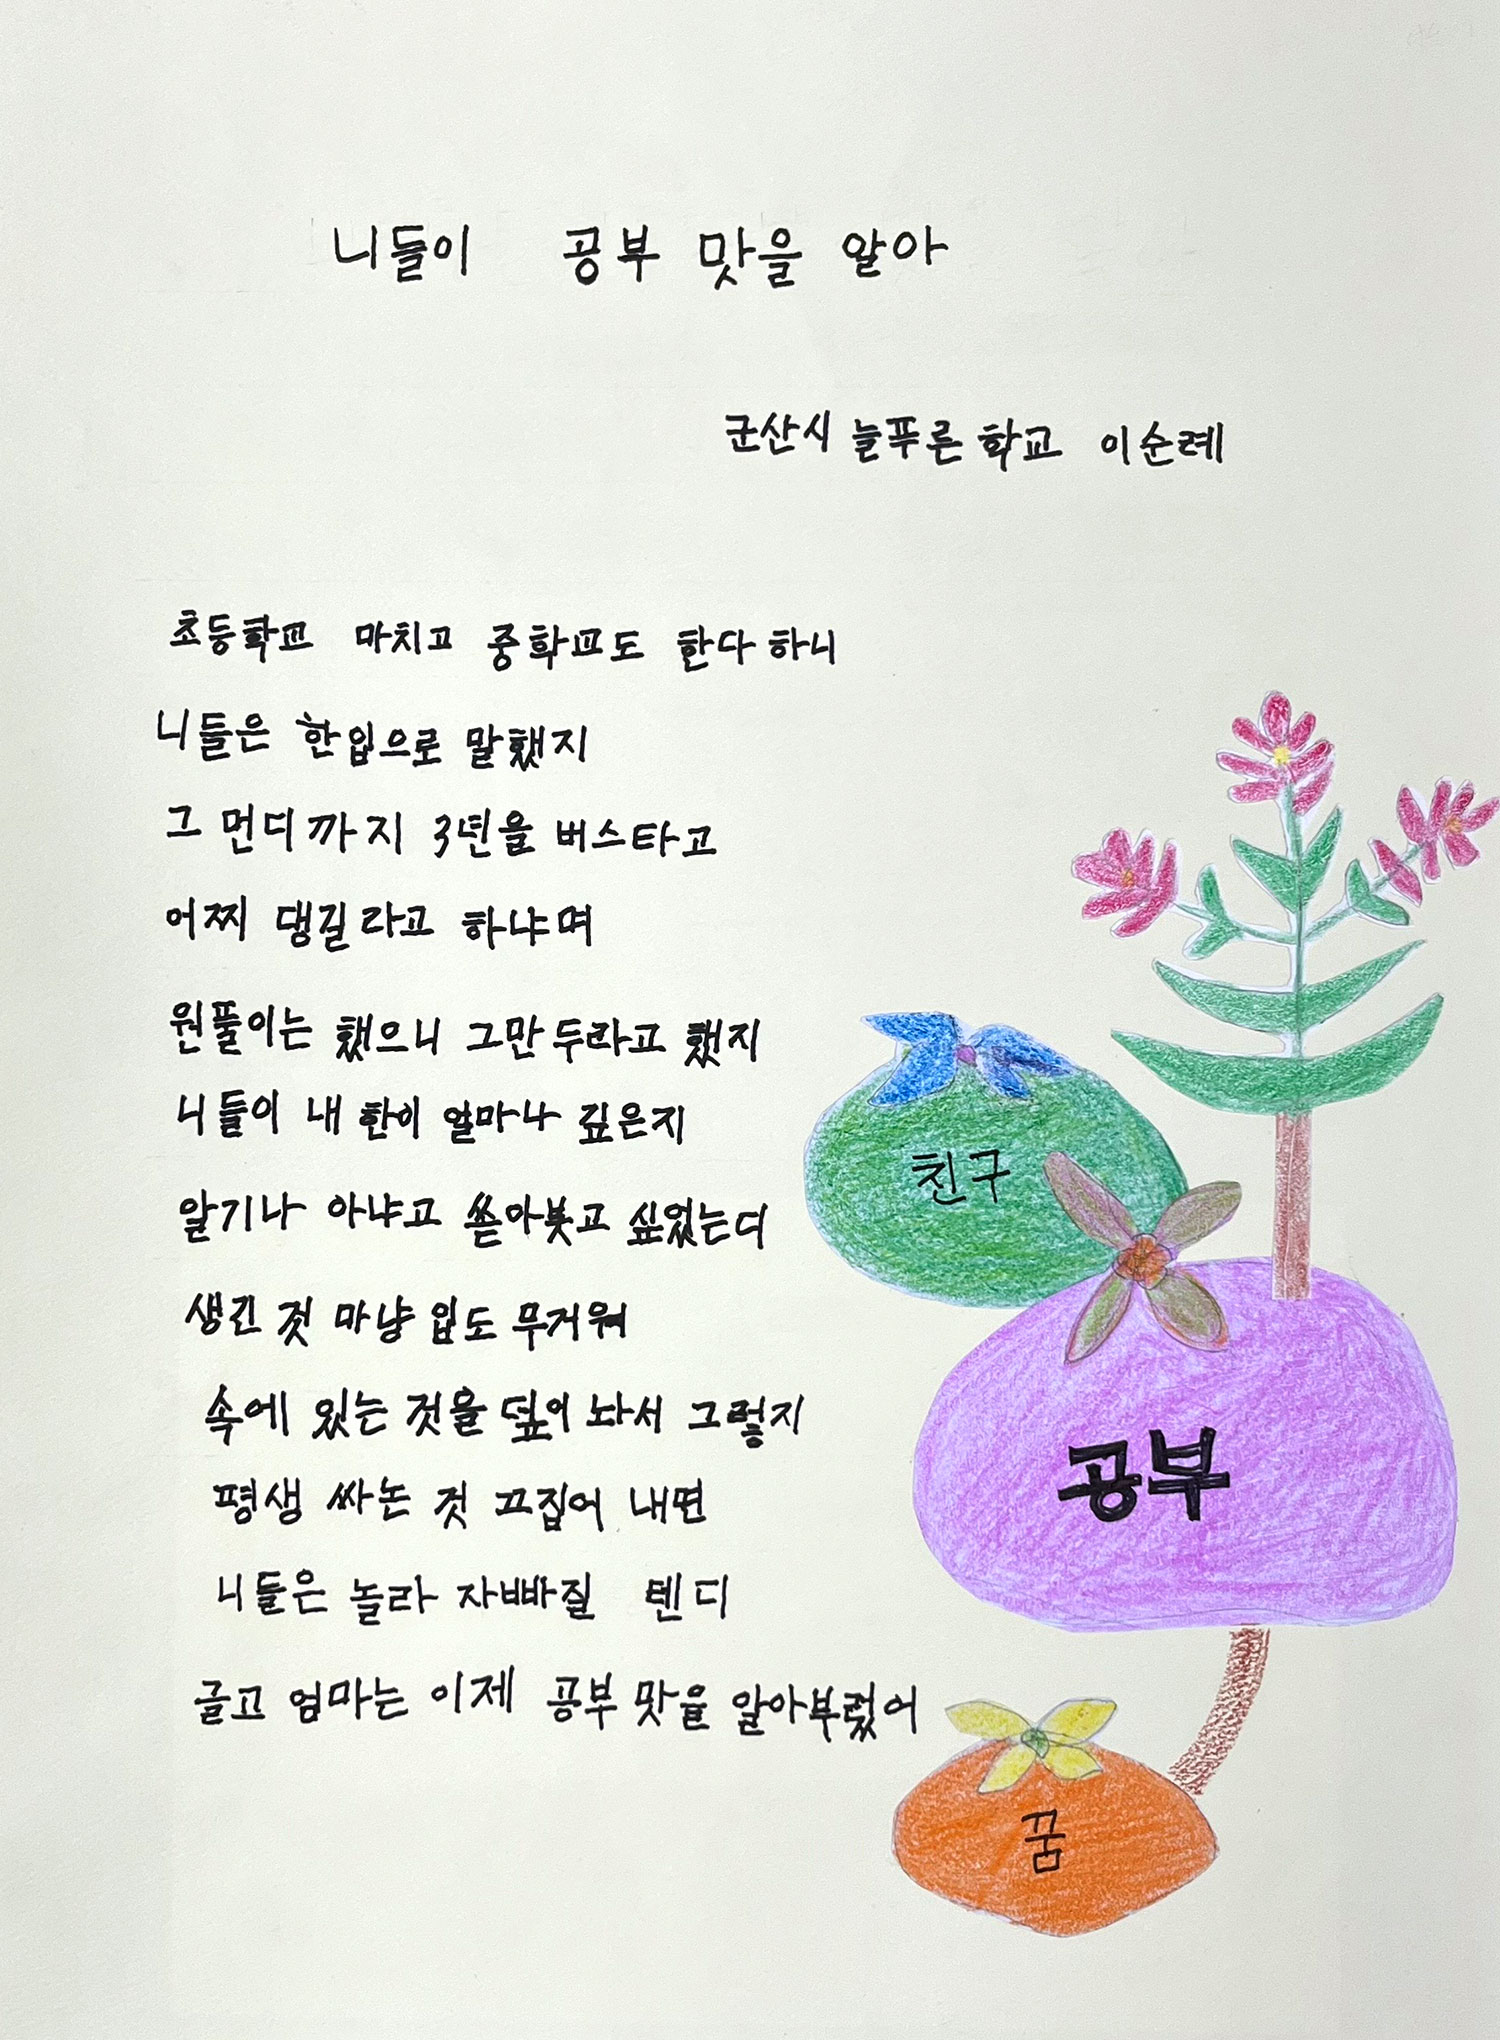 니들이 공부 맛을 알아
군산시 늘푸른 학교 이순례
초등학교 마치고 중학교도 한다 하니
니들은 한입으로 말했지
그 먼디까지 3년을 버스타고
어찌 댕길라고 하냐며
원풀이는 했으니 그만 두라고 했지
니들이 내 한이 얼마나 깊은지
알기나 아냐고 쏟아붓고 싶었는디
생긴 것 마냥 입도 무거워
속에 있는 것을 덮어 놔서 그렇지
평생 싸논 것 끄집어 내면
니들은 놀라 자빠질 텐디
글고 엄마는 이제 공부 맛을 알아부렀어
친구
공부
꿈